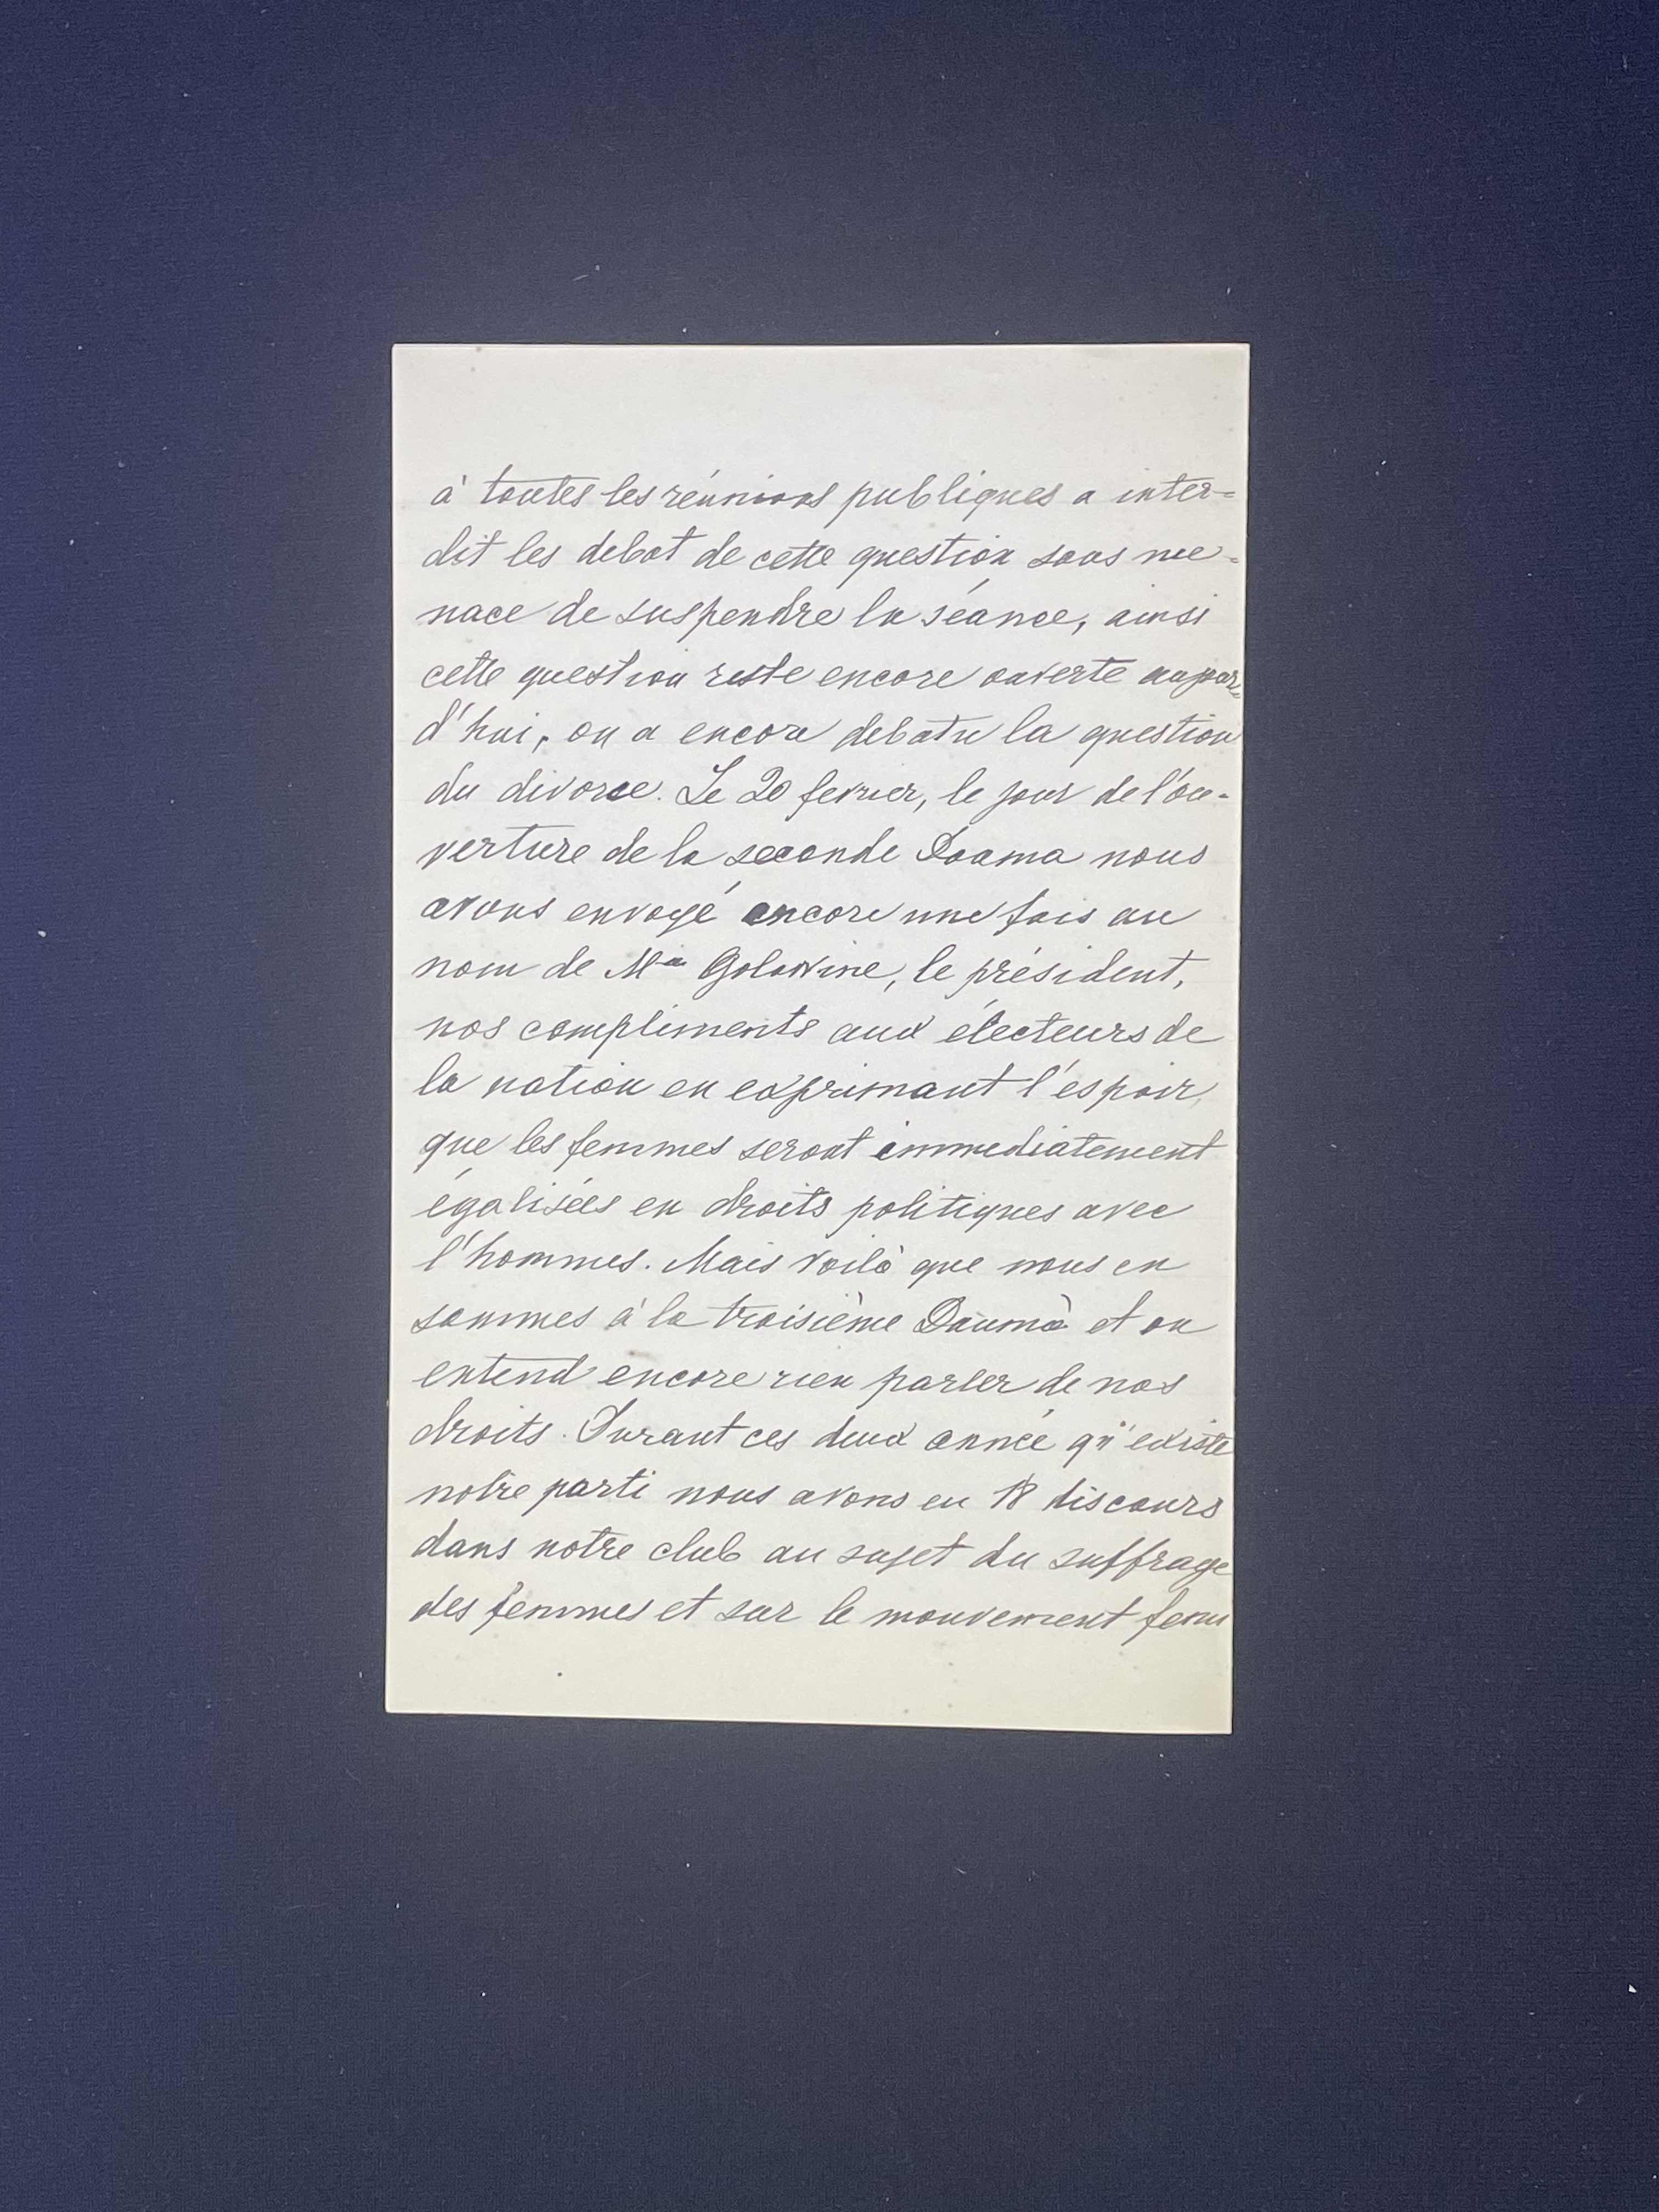 à toutes les réunions publiques a inter=
dit les debat de cette question sous me=
nace de suspendre la séance, ainsi
cette question reste encore ouverte aujour=
d'hui, on a encore debatu la question
du divorce. Le 20 fevrier, le jour de l'ou-
verture de la seconde Douma nous
avons envoyé encore une fois au
nom de Golowine, le président,
nos compliments aux électeurs de
la nation en exprimant l'espoir,
que les femmes seront immediatement
égalisées en droits politiques avec
l'hommes. Mais voilà que nous en
sommes à la troisième Douma et on
entend encore rien parler de nos
droits. Durant ces deux année qu'existe
notre parti nous avons eu 18 discours
dans notre club au sujet du suffrage
des femmes et sur le mouvement femi